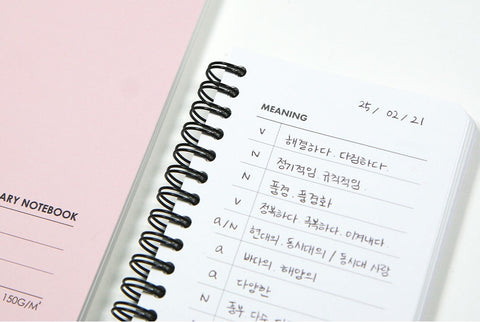 25 / 02 / 21
MEANING
v 해결하다. 다림하다.
N 정기적임 규칙적임.
N 풍경. 풍경화
v 정복하다 극복하다. 이겨내다
a/N 현대의. 동시대의 / 동시대 사람
a 바다의. 해양의
a 다양한
N 풍부 다수
ARY NOTEBOOK
150G/M²